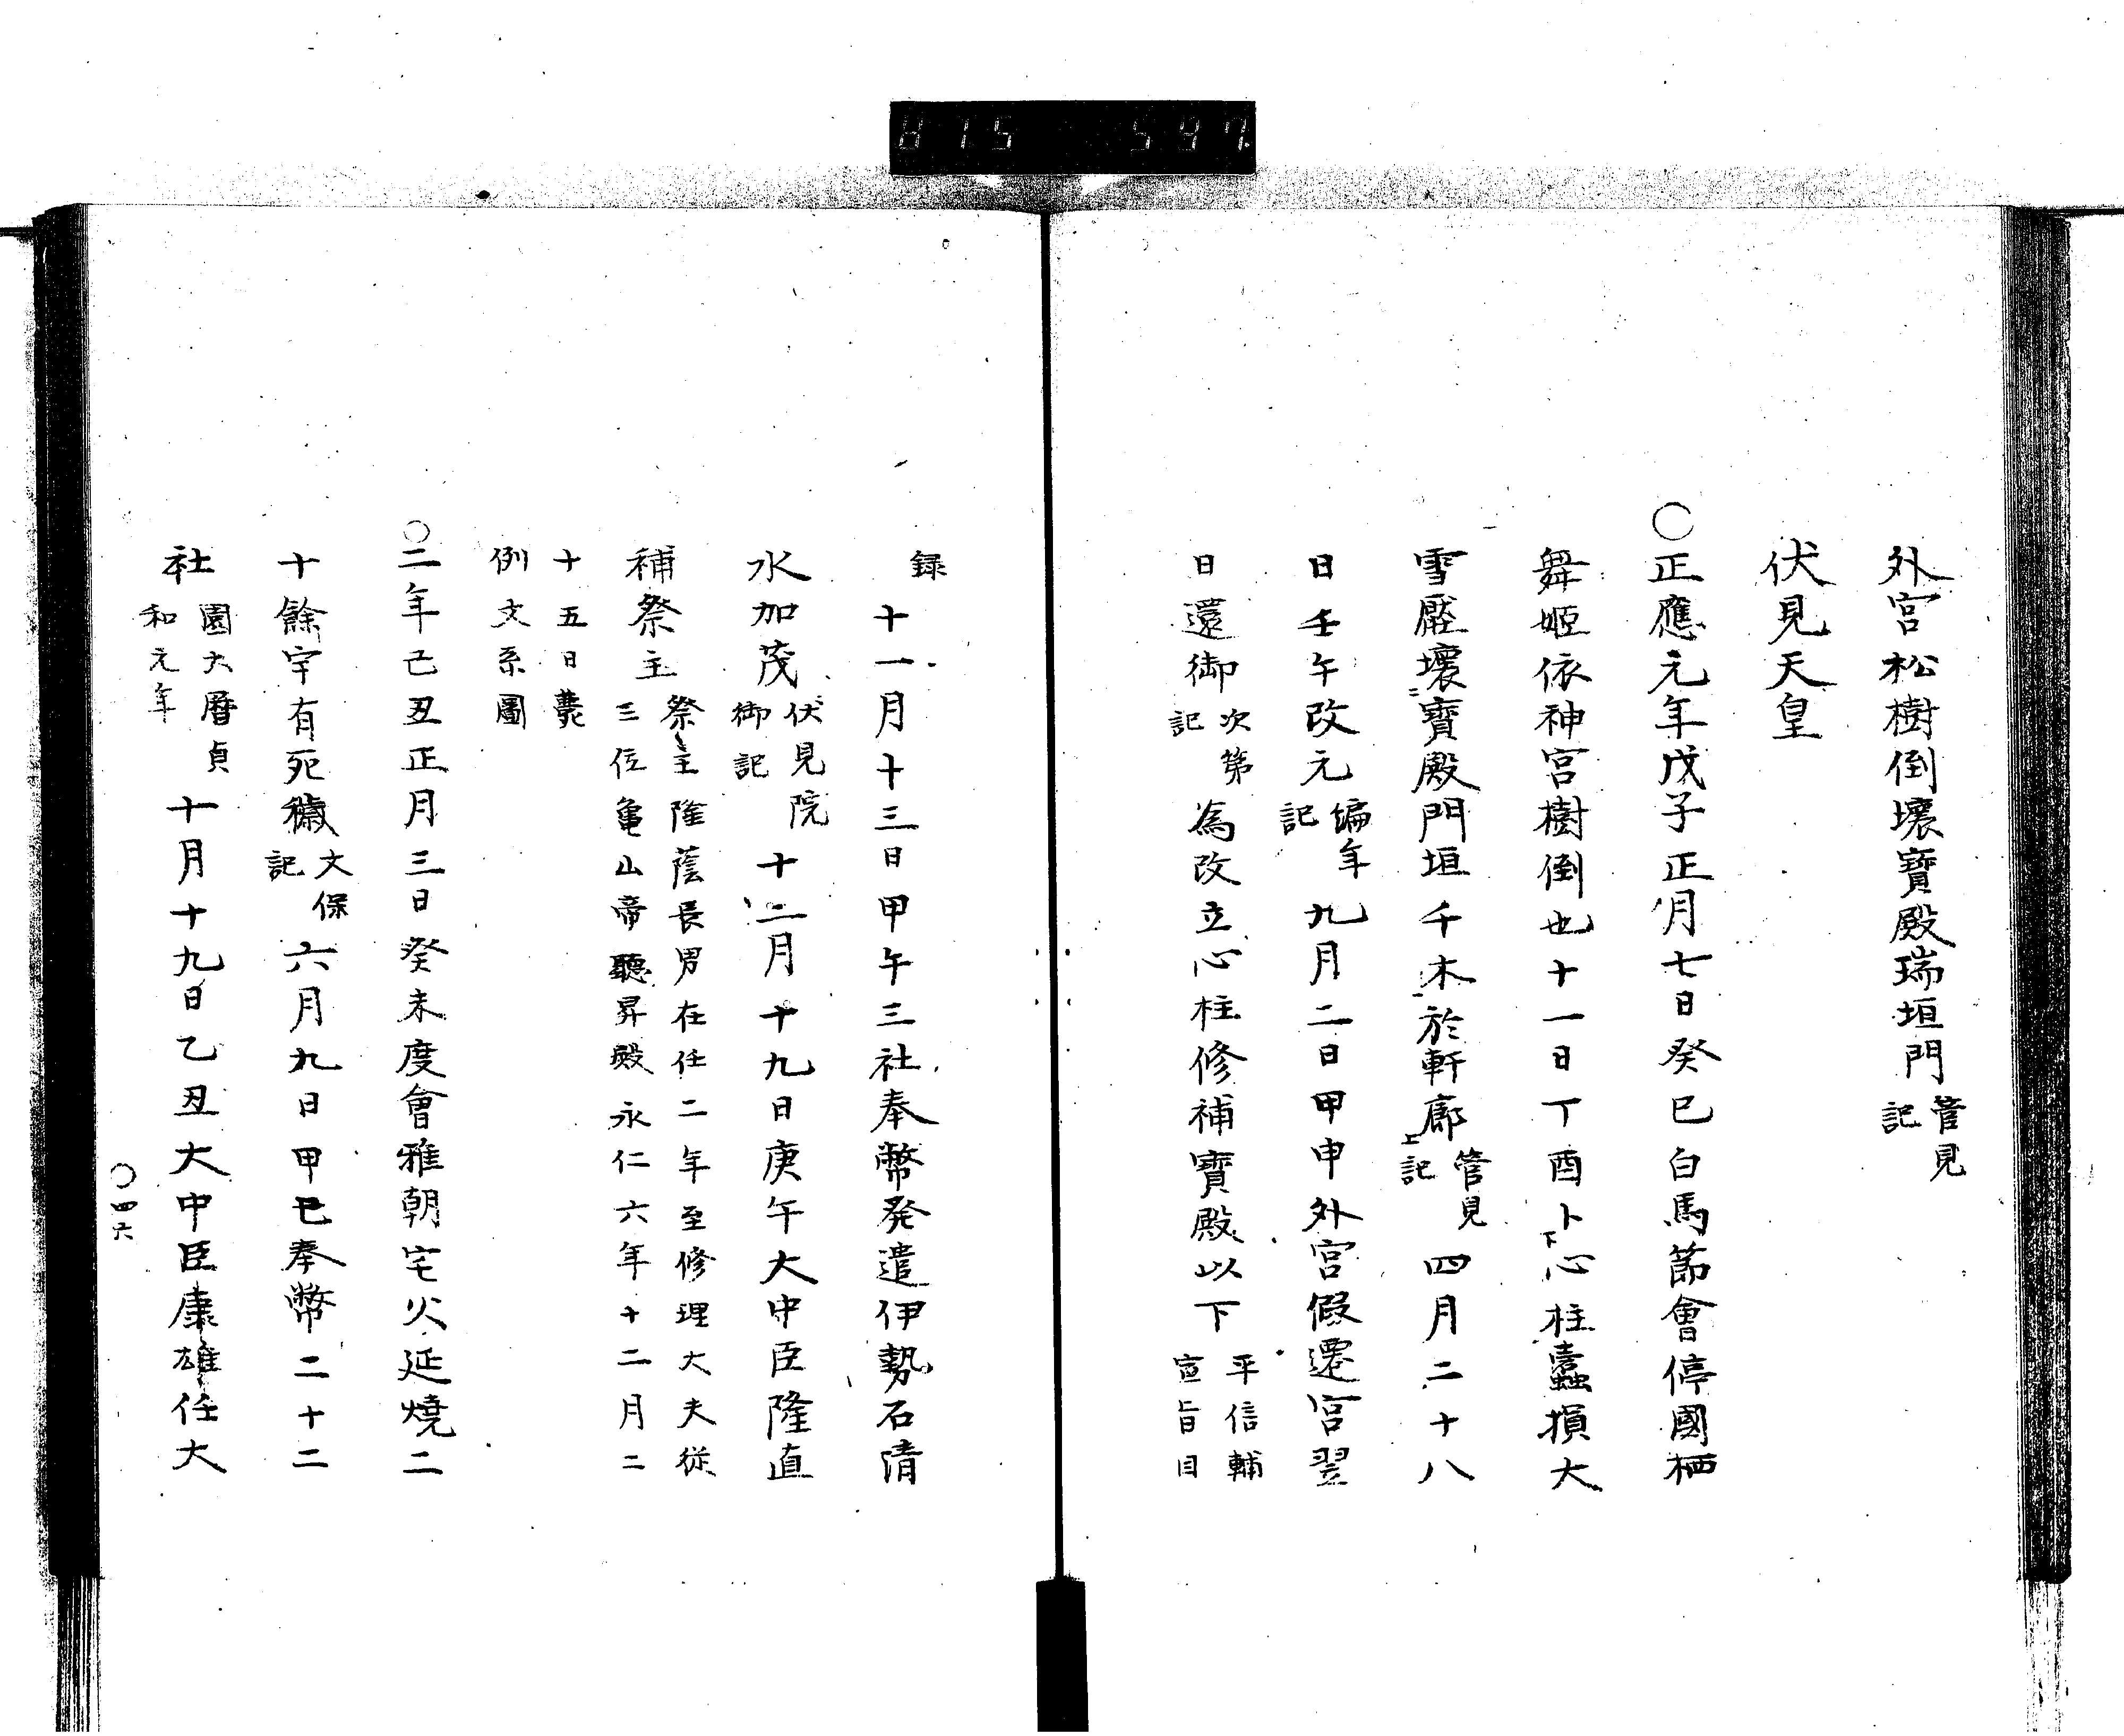 815 597
外宮松樹倒壞寶殿瑞垣門管見記
伏見天皇
〇正應元年戊子正月七日癸巳白馬節會停國栖
舞姬依神宮樹倒也十一日丁酉卜下心柱蠹損大
雪壓壞寶殿門垣千木於軒廊管見記上四月二十八
日壬午改元編年記九月二日甲申外宮假遷宮翌
日還御次第記為改立心柱修補寶殿以下平信輔宣旨目
録十一月十三日甲午三社奉幣発遣伊勢石清
水加茂伏見院御記十二月十九日庚午大中臣隆直
補祭主祭主隆蔭長男在任二年至修理大夫從三位亀山帝聽昇殿永仁六年十二月二
十五日薨例文系圖
〇二年己丑正月三日癸未度會雅朝宅火延燒二
十餘宇有死穢文保記六月九日甲巳奉幣二十二
社園大曆貞和元年十月十九日乙丑大中臣康雄任大
〇四六